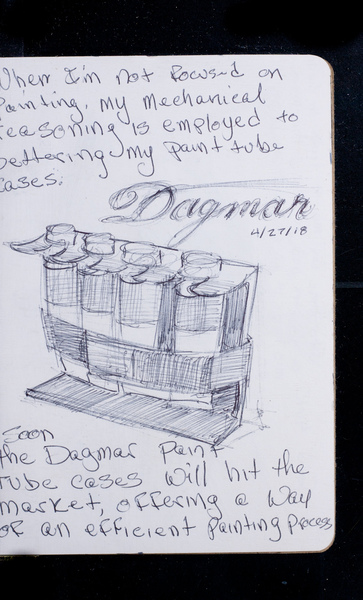 When I'm not focused on
painting, my mechanical
reasoning is employed to
bettering my paint tube
cases.
Dagmar
4/27/18
Soon
the Dagmar Paint
Tube cases will hit the
market, offering a way
of an efficient painting process